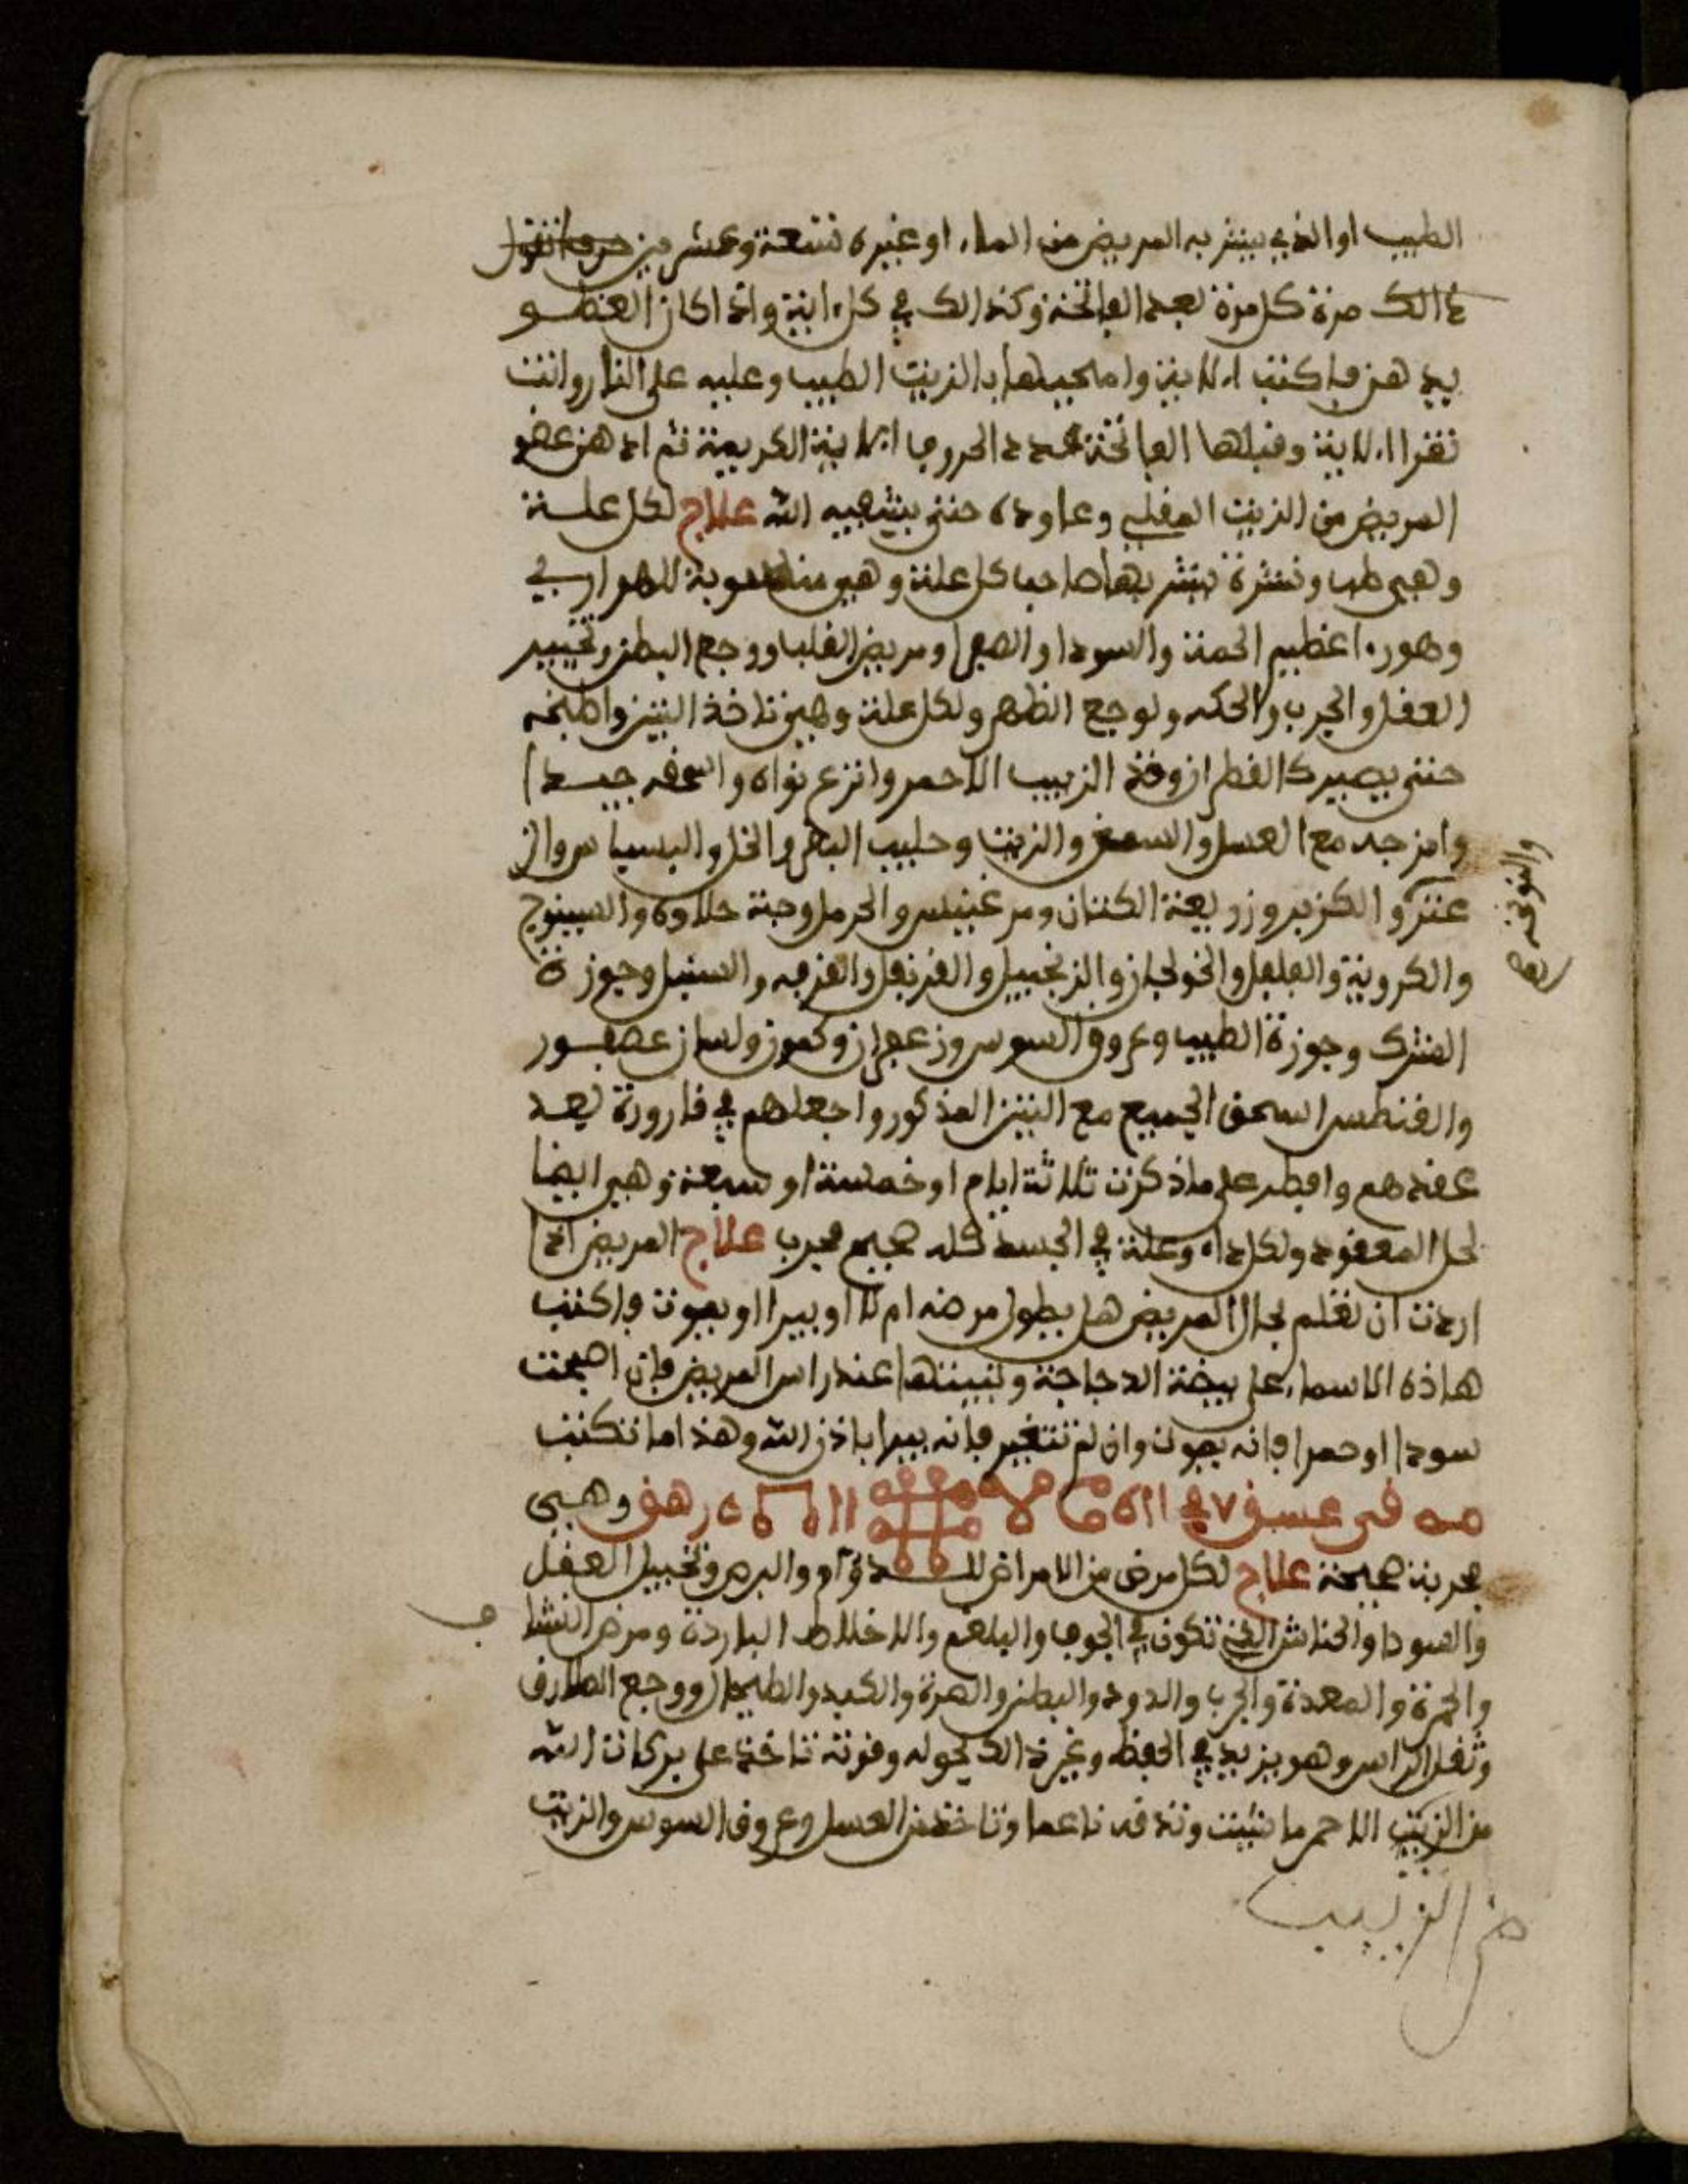 الطيب او الذي يشربه المريض من الماء او غيره تسعة وعشرين حرفا تقول
ذالك مرة كل مرة بعد الفاتحة وكذالك في كل ءاية واذا كان العضو
يدهن فاكتب الاية وامحيها بالزيت الطيب وعليه على النار وانت
تقرا الاية وقبلها الفاتحة عدد الحروف الاية الكريمة ثم ادهن عضو
المريض من الزيت المغلي وعاوده حتى يشفيه الله علاج لكل علة
وهي طب ونشرة يشربها صاحب كل علة وهي منسوبة للهواري
وهو دواء عظيم الحمة والسودا والصفرا ومريض القلب ووجع البطن وتخبير
العقل والجرب والحكه ولوجع الظهر ولكل علة وهي تاخذ التين واطبخه
حتى يصير كالقطران وخذ الزبيب الاحمر وانزع نواه واسحقه جيدا
وامزجه مع العسل والسمن والزيت وحليب البقر والخل والبسباس والز
عتر والكزبر وزريعة الكتان ومرغنيس والحرمل وحبة حلاوه والسينوج
والكروية والفلفل والخولجان والزنجبيل والقرنفل والقرفه والسنبل وجوزة
الشرك وجوزة الطيب وعروق السوس وزعفران وكمون ولسان عصفور
والقنطس اسحق الجميع مع التين المذكور واجعلهم في قارورة بعد
عقدهم وافطر على ماذكرت ثلاثة ايام او خمسة او سبعة وهي ايضا
لحل المعقود ولكل داء وعلة في الجسد كله صحيح مجرب علاج المريض اذا
اردت ان تعلم بحال المريض هل يطول مرضه ام لا او يبرا او يموت فاكتب
هاذه الاسماء على بيضة الدجاجة وتبيتها عند راس المريض فان اصبحت
سودا او حمرا فانه يموت وان لم تتغير فانه يبرا باذن الله وهذا ما تكتب
وهي
مجربة صحيحة علاج لكل مرض من الامراض والبرص وتخبيل العقل
والسودا والحناش التي تكون في الجوف والبلغم والاخلاط الباردة ومرض النشا ف
والحمرة والمعدة والجرب والدود والبطن والصرة والكبد والطيحال ووجع المفارق
وثقل الراس وهو يزيد في الحفظ وغير ذالك بحوله وقوته تاخذ على بركات الله
من الزبيب الاحمر ما شيت وتدقه ناعما وتاخذ من العسل وعروق السوس والزيت
من الزبيب